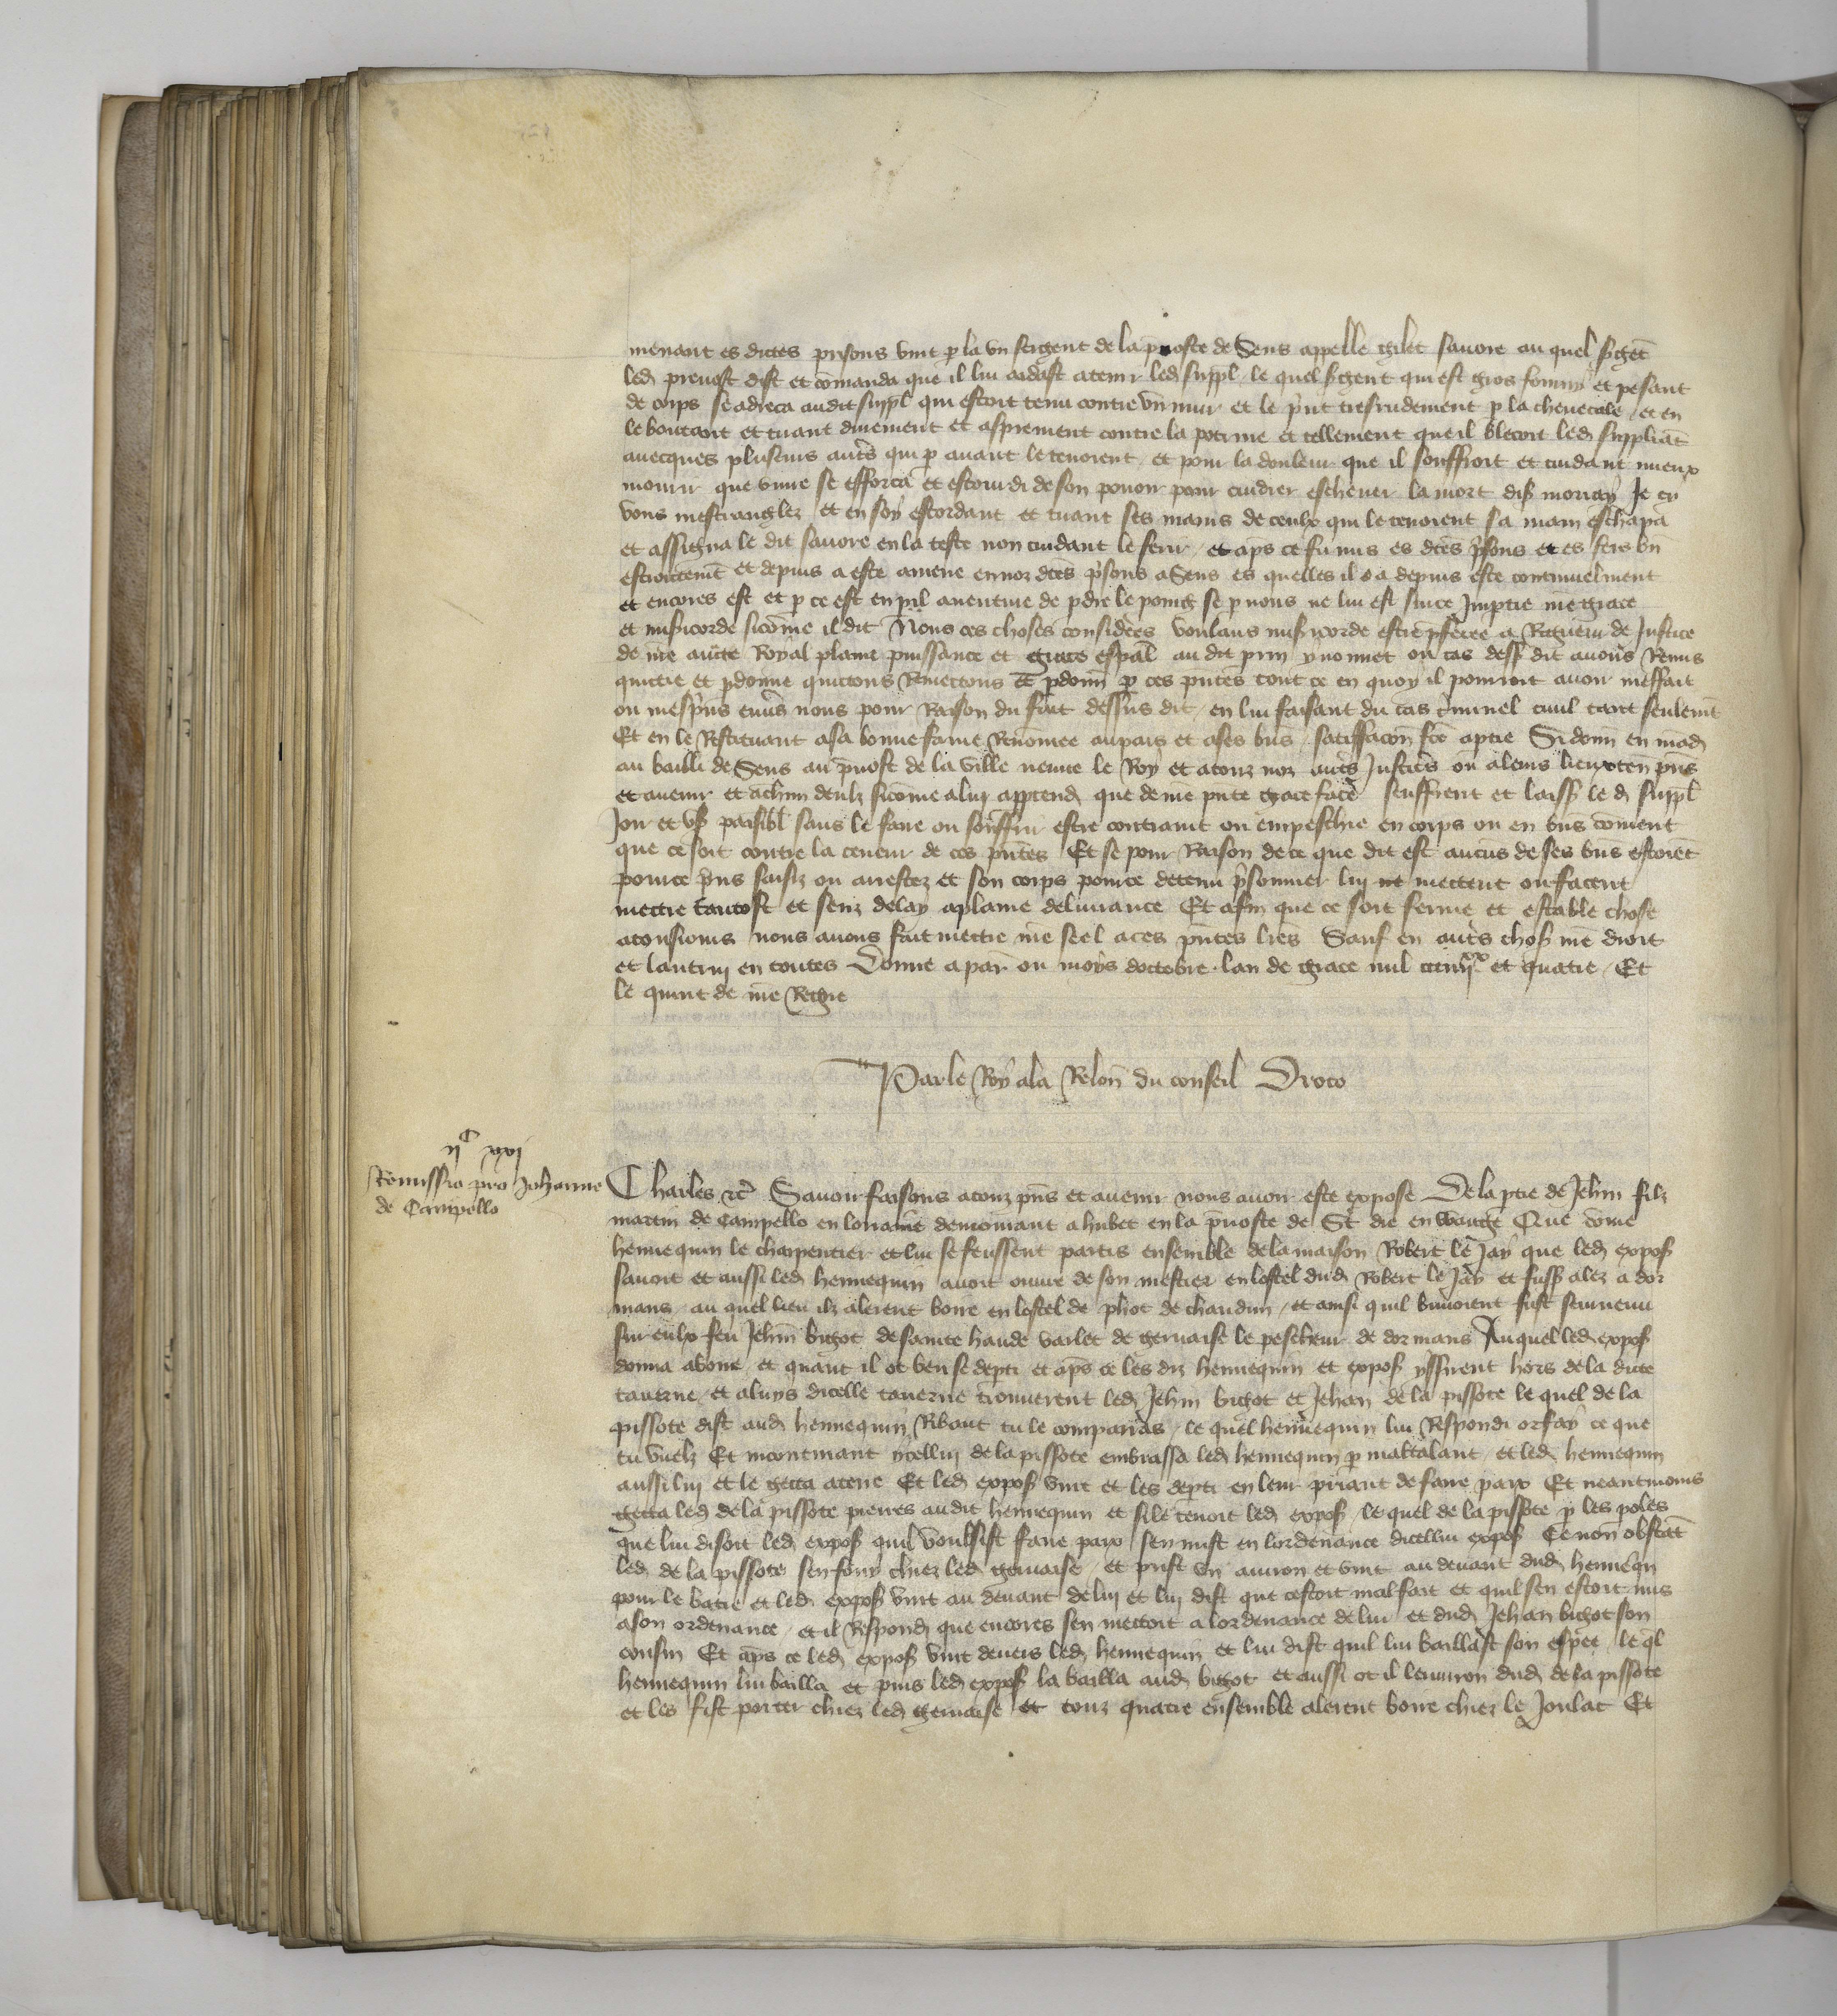 menant es dictes prisons vint p la vn sergent de la pruoste de Sens appelle gilet sauore au quel sgēt
led preuost dist et comanda que il lui aidast atenir led suppl le quel sgent qui est gros sommy et pesant
de corps se adreca audit suppl qui estoit tenu contre vn mur et le p̄nt tresrudement p la cheuecaille et en
le boutant et tirant durement et asprement contre la potrine et tellement que il blecoit led suppliāt
auecques plusieurs aut̄s qui p auant le tenoient et pour la douleur que il souffroit et cuidant mieux
mourir que viure se efforca et estourdi de son pouoir pour cuidier escheuer la mort dis moriay Je cy
vous mestranglez et en soy estordant et tirant ses mains de ceulx qui le tenoient sa main eschapa
et assigna le dit sauore en la teste non cuidant le ferir et ap̄s ce fu mis es dc̄es p̄sons et es fers bn̄
estroictemt̄ et depuis a este amene en noz dc̄es p̄sons a Sens es quelles il a depuis este continuelment
et encores est et p ce est en pil auenture de pdre le poing se p nous ne lui est sur ce Jmptie nr̄e grace
et mis̄icorde sicōme il dit Nous ces choses considerees voulans mis̄icorde estre p̄feree a Rigueur de Justice
de nr̄e aucte Royal plaine puissance et grace esp̄al au dit prin p nonmet ou cas dess̄ dit auons Remis
quictie et pdonne quictons Remectons et pdonn̄ p ces pn̄tes tout ce en quoy il pourroit auoir meffait
ou mesp̄ns enu̇s nous pour Raison du fait dessus dit en lui faisant du cas c̄minel ciuil tant seulemt̄
Et en le Restituant a sa bonne fame Renōmee au pais et a ses biēs satisffacōn fc̄e a ptie Si donn̄ en mād
au bailli de Sens au pruost de la ville neuue le Roy et a touz noz aut̄s Justic̄s ou a leurs lieuxten̄ pn̄s
et auenir et a ch̄un deulx sicōme a luy apptend que de nr̄e pn̄te grace facēt seuffrent et laiss̄ le d suppl
Joir et vs̄ paisibl̄ sans le faire ou souffrir estre contraint ou empeschie en corps ou en biēs coment
que ce soit contre la teneur de ces pn̄tes Et se pour Raison de ce que dit est aucūs de ses biēs estoiēt
pour ce p̄ns saisiz ou arrestez et son corps pour ce detenu p̄sonnier luy mettent ou facent
mettre tantost et senz delay a plaine deliurance Et afin que ce soit ferme et estable chose
a tousiours nous auons fait mettre nr̄e seel a ces pn̄tes lr̄es Sauf en aut̄s chos̄ nr̄e droit
et lautruy en toutes Donne a par̄ ou moys doctobre lan de grace mil ccciiijxx et quatre Et
le quint de nr̄e Regne
Par le Roy a la Relon̄ du conseil Droco
ijC xxj
Remissio pro Johanne
de Campello
Charles etc̄ Sauoir faisons a touz pn̄s et auenir nous auoir este expose De la ptie de Jehn̄ filz
martin de Campello en loraine demourant a hubet en la p̄uoste de St̄ die en wauge Que cōme
hennequin le charpentier et lui se feussent partis ensemble de la maison Robert le Jay que led expos̄
sauoit et aussi led hennequin auoit ouure de son mestier en lostel dud Robert le Jay et fuss̄ alez a dor
mans au quel lieu ilz alerent boire en lostel de phot de chaudun et ainsi quil buuoient fust seuruenu
sur eulx feu Jehn̄ bigot de sainte haude varlet de geruaise le pescheur de dormans Auquel led expos̄
donna aboire et quant il ot beu se depti et ap̄s ce les diz hennequin et expos̄ yssirent hors de la dicte
tauerne et a luys dicelle tauerne trouuerent led Jehn̄ bigot et Jehan de la pissote le quel de la
pissote dist aud hennequin Ribaut tu le comparras le quel hennequin lui Respondi or fay ce que
tu vuelz Et incontinant ycelluy de la pissote embrassa led hennequin p maltalant et led hennequin
aussi luy et le getta a terre Et led expos̄ vint et les depti en leur priant de faire paix Et neantmoins
getta led de la pissote pierres audit hennequin et si le tenoit led expos̄ le quel de la pissote p les poles
que lui disoit led expos̄ quil voulsist faire paix sen mist en lordenance dicellui expos̄ Ce non obstāt
led de la pissote sen fouy chiez led geruaise et prist vn auiron et vint au deuant dud henneq̄n
pour le batre et led expos̄ vint au deuant de luy et luy dist que cestoit mal fait et quil sen estoit mis
a son ordenance et il Respond que encores sen mettoit a lordenance de lui et dud Jehan bigot son
cousin Et ap̄s ce led expos̄ vint deuers led hennequin et lui dist quil lui baillast son espee le q̄l
hennequin lui bailla et puis led expos̄ la bailla aud bigot et aussi ot il lenuiron dud de la pissote
et les fist porter chiez led geruaise et touz quatre ensemble alerent boire chiez le Joulat Et